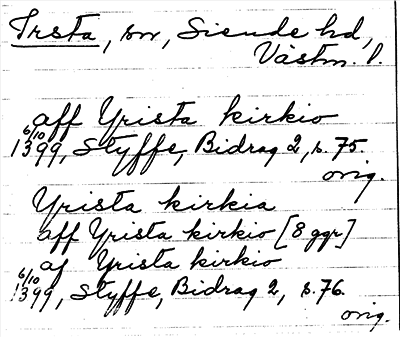 Irsta, sn, Siende hd,
Västm. l.
aff Yrista kirkio
6/10 1399, Styffe, Bidrag 2, s. 75.
orig.
Yrista kirkia
aff Yrista kirkio [8 ggr]
af Yrista kirkio
6/10 1399, Styffe, Bidrag 2, s. 76.
orig.